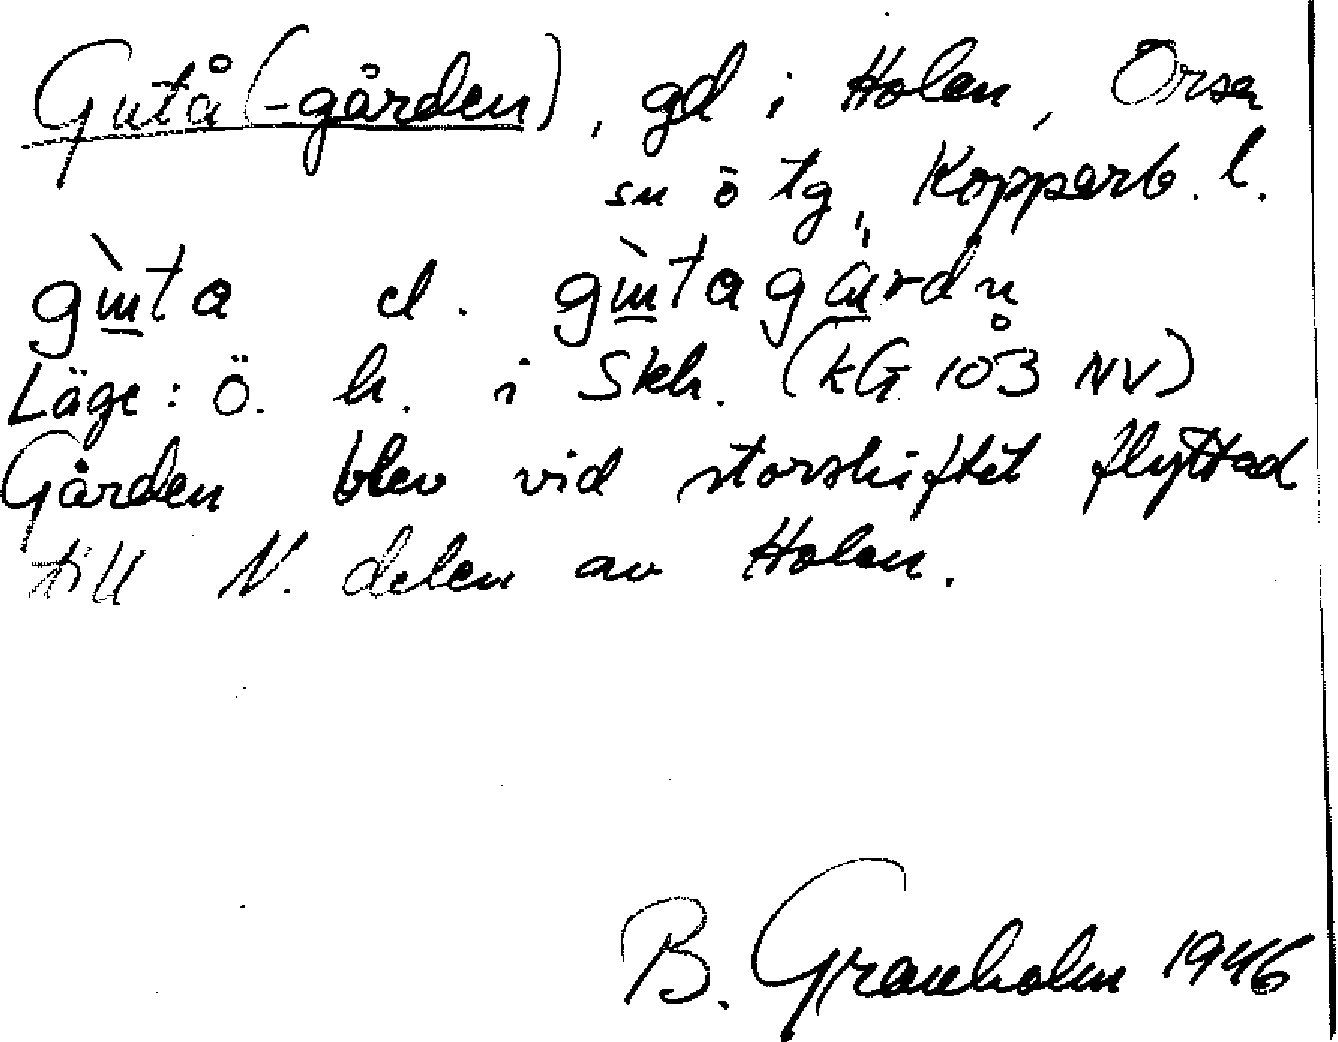 Gutå(-gården), gd i Holen, Orsa
sn ö tg, Kopparb. l.
gùta el. gùtagàrdn̥
Läge: Ö. h. i Skh. (KG 103 NV)
Gården blev vid storskiftet flyttad
till N. delen av Holen.
B. Granholm 1946